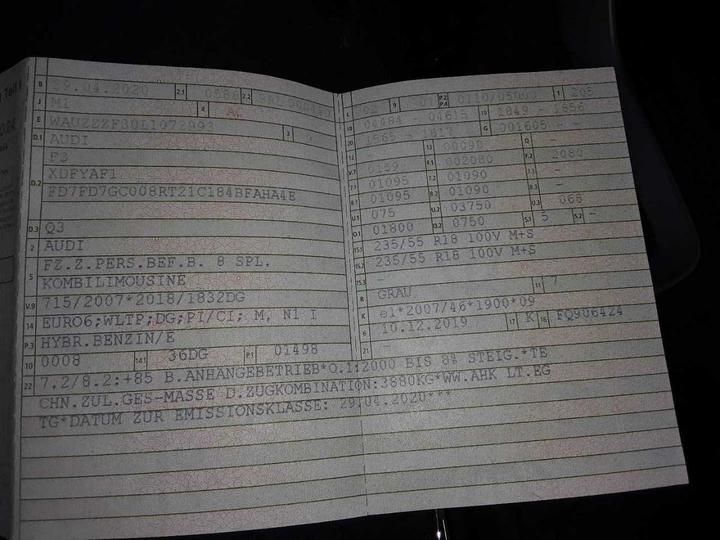 B 29.04.2020 2.1 0588 2.2
J M1 4
E WAUZZZF30L1072993 3
D.1 AUDI
F3
XDFYAF1
D.2 FD7FD7GC008RT21C184BFAHA4E
D.3 Q3
2 AUDI
5 FZ.Z.PERS.BEF.B. 8 SPL.
KOMBILIMOUSINE
V.9 715/2007*2018/1832DG
14 EURO6;WLTP;DG;PI/CI; M, N1 I
P.3 HYBR.BENZIN/E
10 0008 14.1 36DG P.1 01498
22 7.2/8.2:+85 B.ANHANGEBETRIEB*O.1:2000 BIS 8% STEIG.*TE
CHN.ZUL.GES-MASSE D.ZUGKOMBINATION:3880KG*WW.AHK LT.EG
TG*DATUM ZUR EMISSIONSKLASSE: 29.04.2020***
9 P.2 P.4 0110/05000 T 205
18 04484 - 04615 19 1849 - 1856
20 1565 - 1617 G 001605 - -
13 00090 Q -
V.7 0159 F.1 002080 F.2 2080
7.1 01095 7.2 01090 7.3 -
8.1 01095 8.2 01090 8.3 -
U.1 075 U.2 03750 U.3 068
O.1 01800 O.2 0750 S.1 5 S.2 -
15.1 235/55 R18 100V M+S
15.2 235/55 R18 100V M+S
15.3 -
R GRAU 11 7
K e1*2007/46*1900*09
6 10.12.2019 17 K 16 FQ906424
21 -